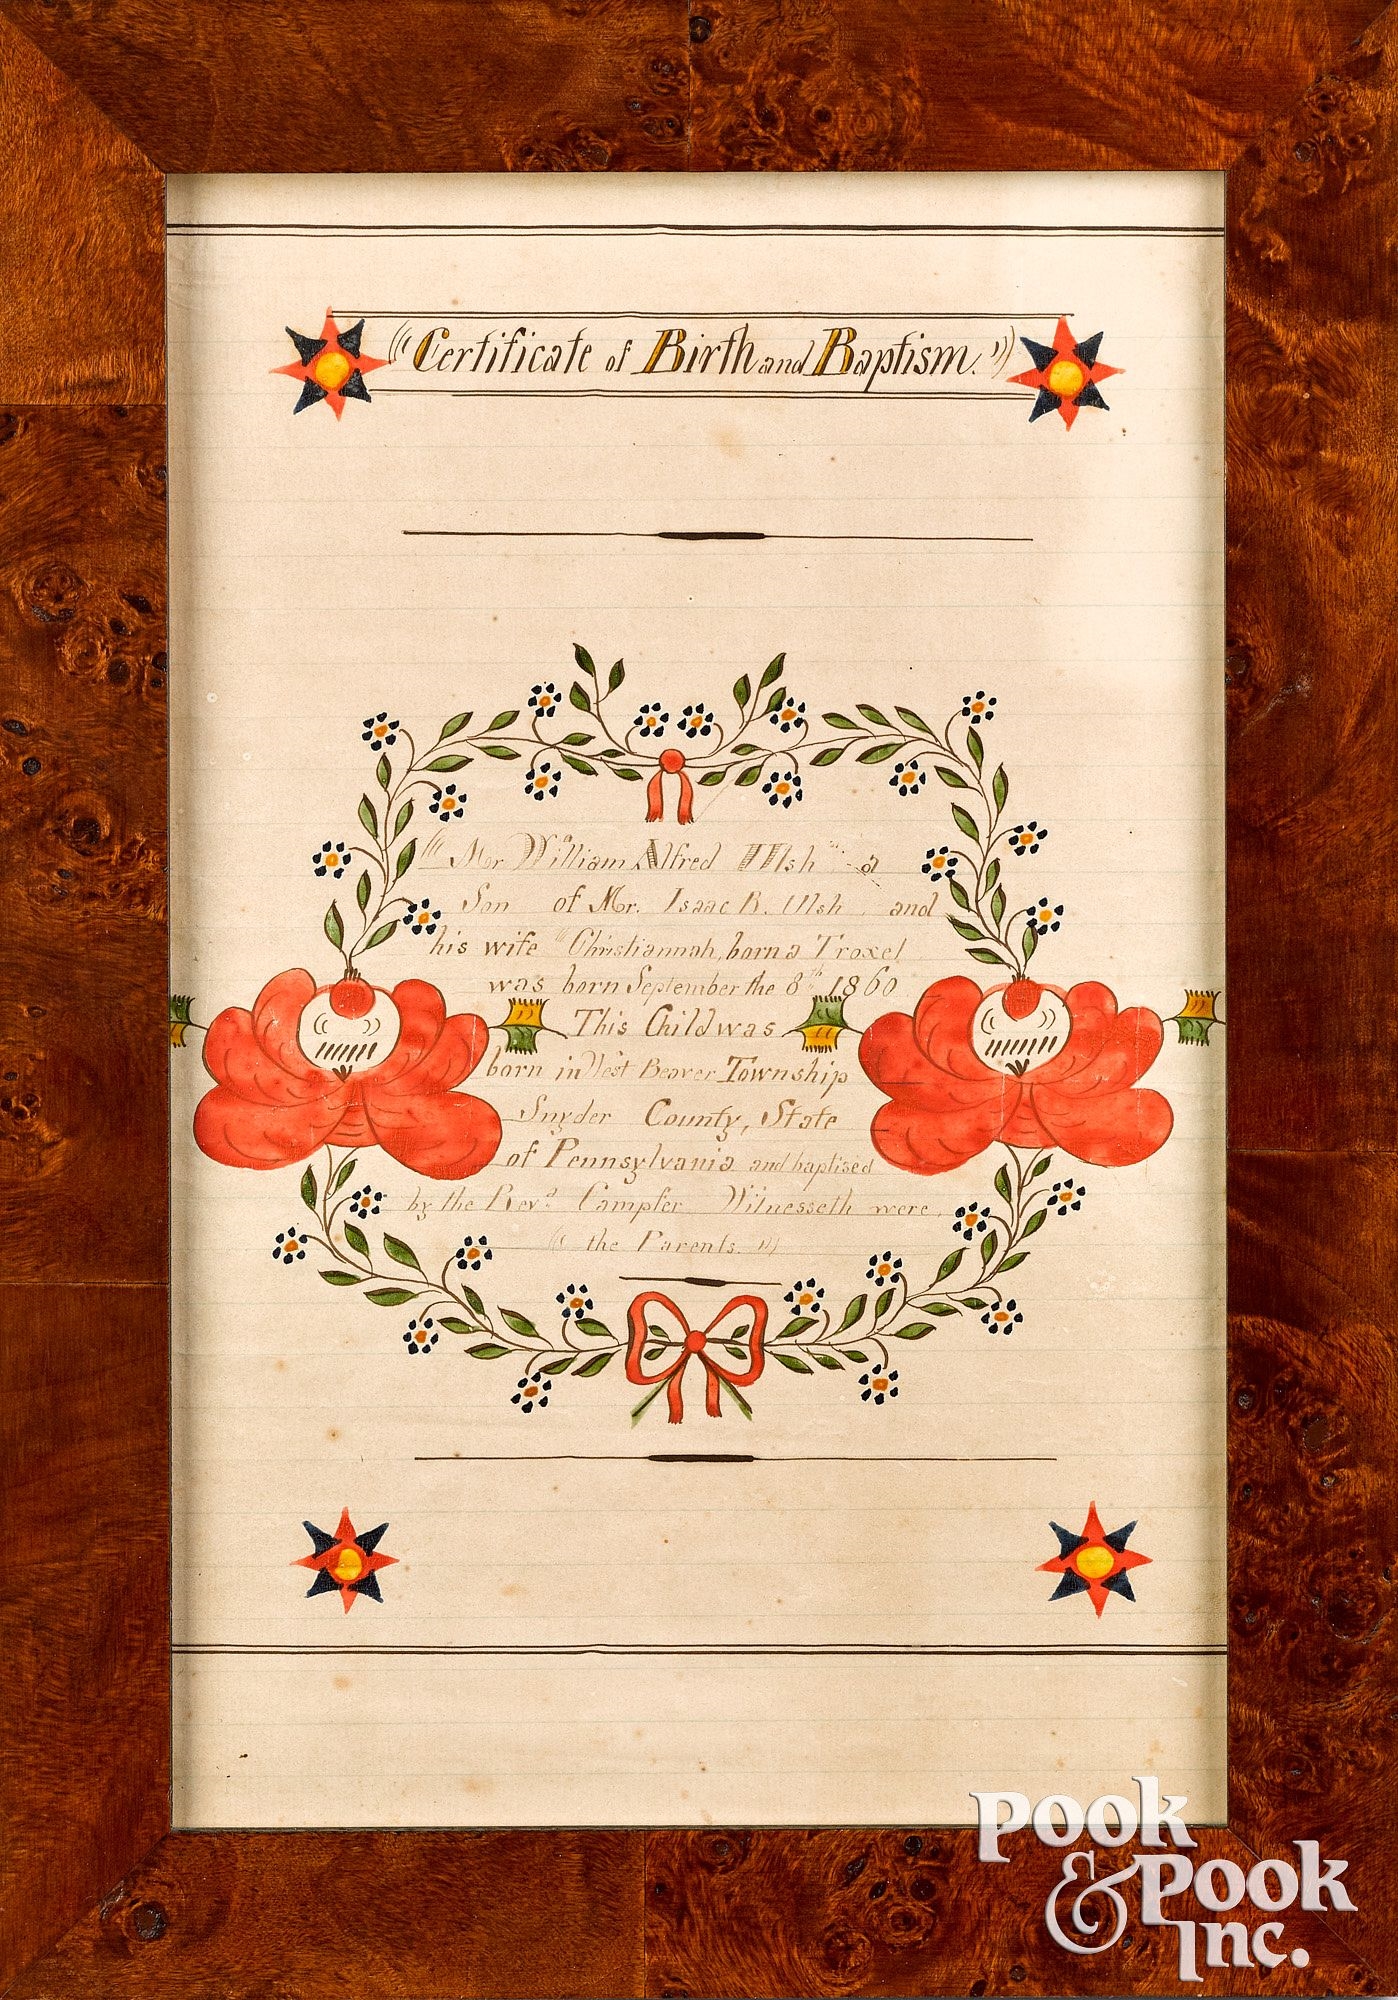 "Certificate of Birth and Baptism."
"Mr William Alfred Ulsh" a
Son of Mr. Isaac R. Ulsh and
his wife "Christiannah, born a Troxel
was born September the 8th 1860
This Child was
born in West Beaver Township
Snyder County, State
of Pennsylvania and baptised
by the Revd Campfer Witnesseth were,
"the Parents."
Pook
& Pook
Inc.